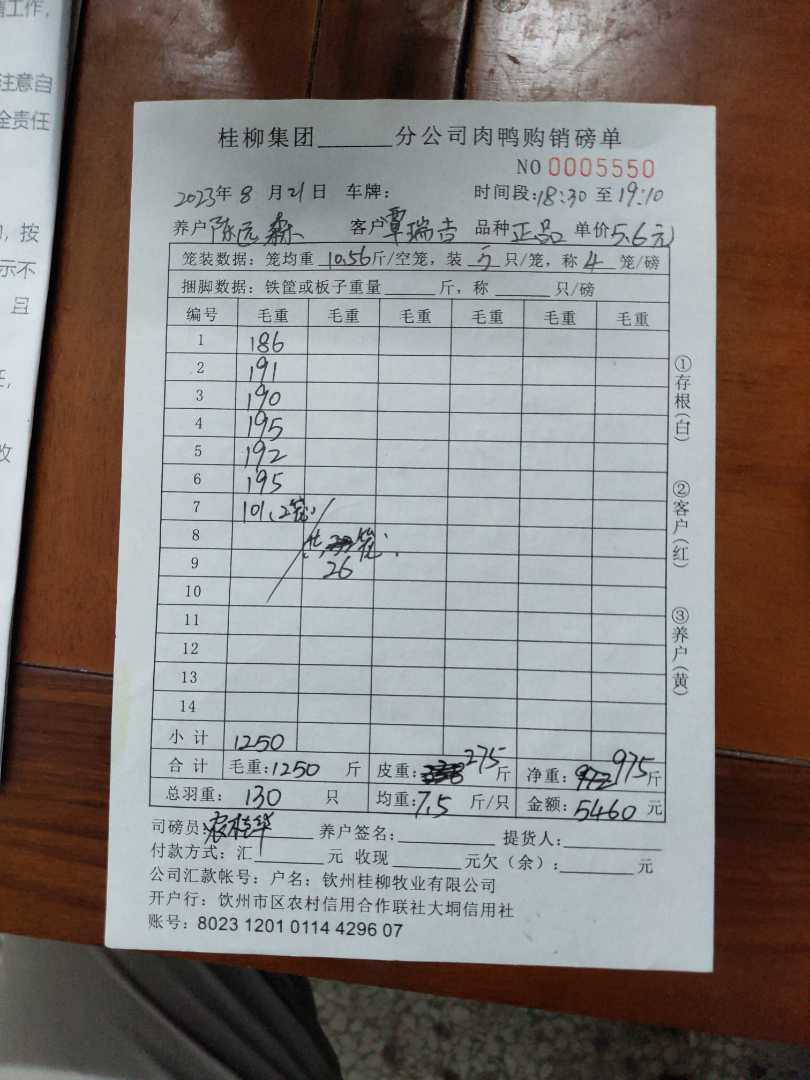 情工作,
注意自
全责任
,按
示不
且
任,
收
桂柳集团______分公司肉鸭购销磅单
NO 0005550
2023年 8 月 21 日 车牌: 时间段:18:30 至 19:10
养户 陈远森 客户 覃瑞吉 品种 正品 单价 5.6元
笼装数据:笼均重 10.56 斤/空笼,装 5 只/笼,称 4 笼/磅
捆脚数据:铁筐或板子重量______斤,称______只/磅
编号 毛重 毛重 毛重 毛重 毛重 毛重
1 186
2 191
3 190
4 195
5 192
6 195
7 101(2笼)
8 共 笼
9 26
10
11
12
13
14
小 计 1250
合 计 毛重:1250 斤 皮重: 275 斤 净重: 975 斤
总羽重: 130 只 均重:7.5 斤/只 金额:5460 元
司磅员:农桂华 养户签名:______ 提货人:______
付款方式:汇______元 收现______元欠(余):______元
公司汇款帐号:户名:钦州桂柳牧业有限公司
开户行:钦州市区农村信用合作联社大垌信用社
账号:8023 1201 0114 4296 07
①存根(白)
②客户(红)
③养户(黄)